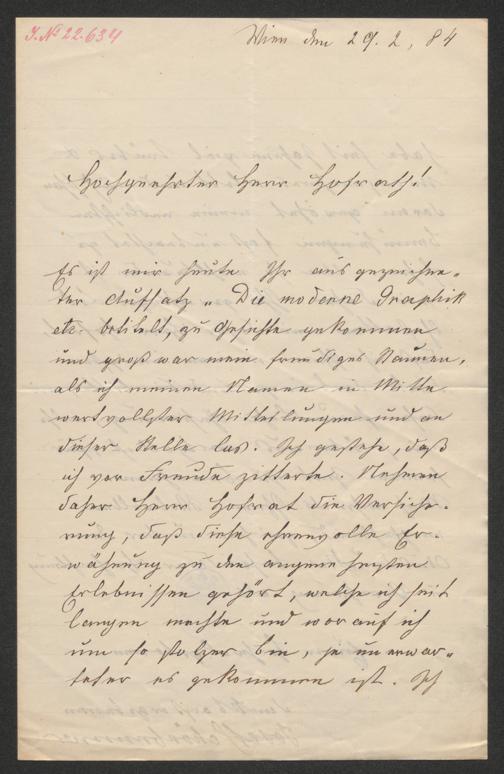 J.N 22.634
Wien den 29. 2, 84
Hochgeehrter Herr Hofrath!
Es ist mir heute Ihr ausgezeichne-
ter Aufsatz „Die moderne Graphik
etc. betitelt, zu Gesichte gekommen
und groß war mein freudiges Staunen,
als ich meinen Namen in Mitte
wertvollster Mitteilungen und an
dieser Stelle las. Ich gestehe, daß
ich vor Freude zitterte. Nehmen
daher Herr Hofrat die Versiche-
rung, daß diese ehrenvolle Er-
wähnung zu den angenehmsten
Erlebnissen gehört, welche ich seit
langen machte und worauf ich
um so stolzer bin, je unerwar-
teter es gekommen ist. Ich